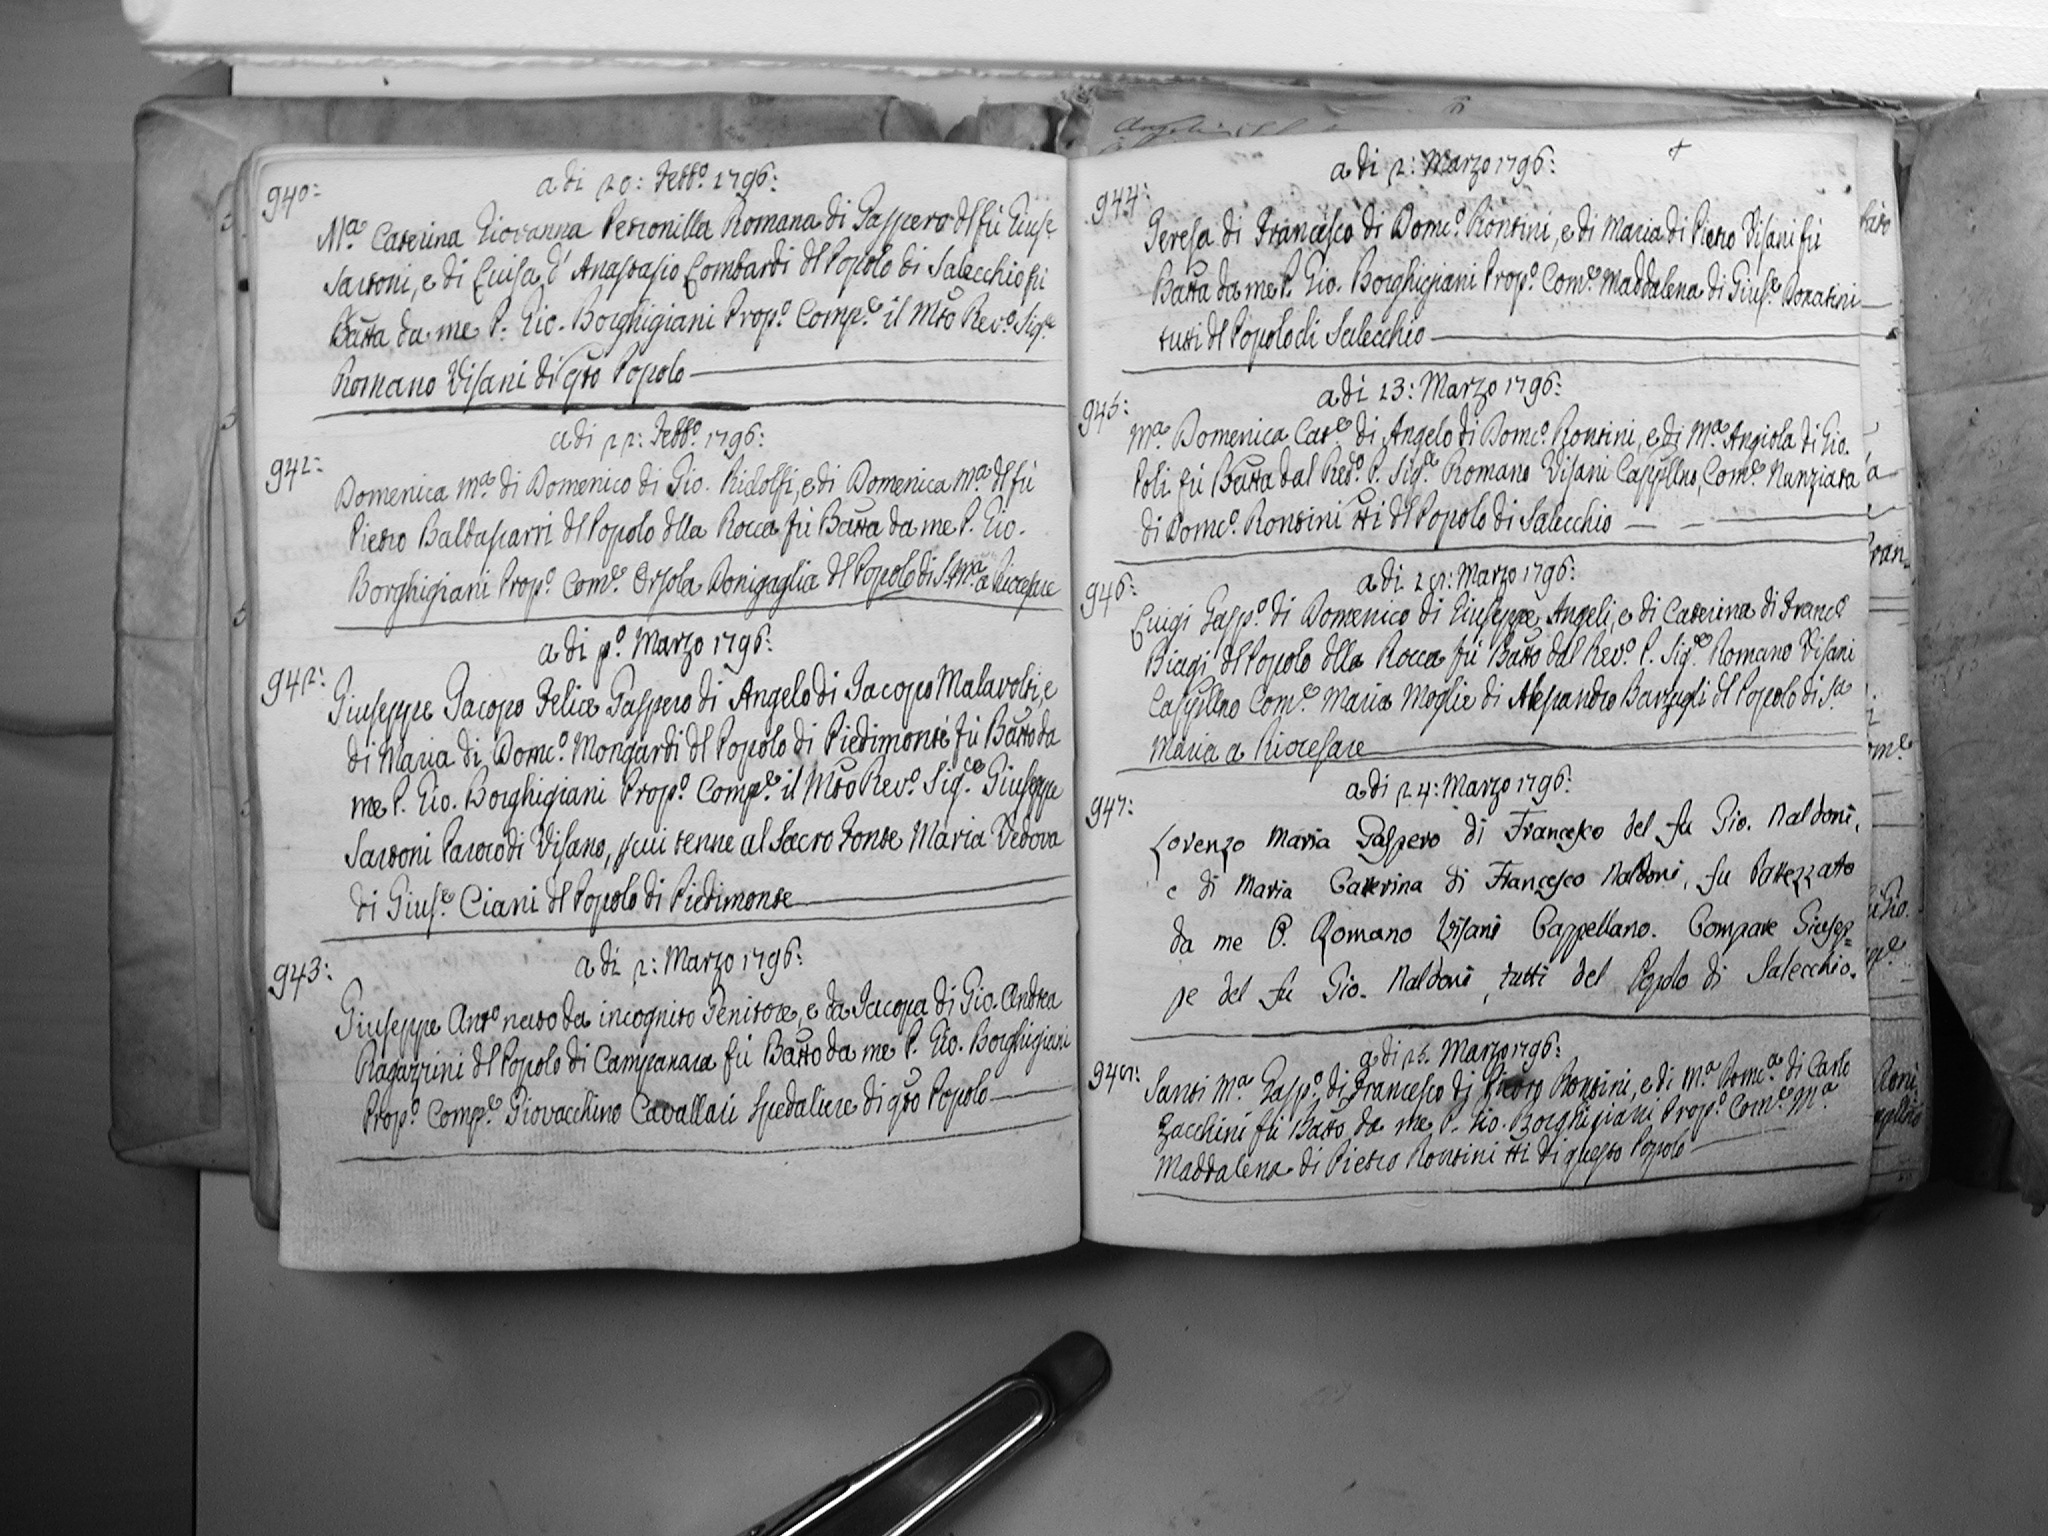 940:
a di 20: Febb.º 1796:
M.ª Caterina Giovanna Petronilla Romana di Gaspero dl fù Gius.e
Sartoni, e di Luisa d' Anastasio Lombardi dl Popolo di Salecchio fù
Batta da me P. Gio. Borghigiani Prop.º Comp.e il Mto Rev.º Sig.e
Romano Visani di qto Popolo
941:
a di 22: Febb.º 1796:
Domenica M.ª di Domenico di Gio. Ridolfi, e di Domenica M.ª dl fù
Pietro Baldasarri dl Popolo dlla Rocca fù Batta da me P. Gio.
Borghigiani Prop.º Com.e Orsola Donigaglia dl Popolo di S. M.ª a Riocesare
942:
a di p.º Marzo 1796:
Giuseppe Jacopo Felice Gaspero di Angelo di Jacopo Malavolti, e
di Maria di Domc.º Mongardi dl Popolo di Piedimonte fù Batto da
me P. Gio. Borghigiani Prop.º Comp.e il Mto Rev.º Sig.e Giuseppe
Sartoni Paroco di Visano, p cui tenne al Sacro Fonte Maria Vedova
di Gius.e Ciani dl Popolo di Piedimonte
943:
a di 2: Marzo 1796:
Giuseppe Ant.º nato da incognito Genitore, e da Jacopa di Gio. Andrea
Ragazzini dl Popolo di Campanara fù Batto da me P. Gio. Borghigiani
Prop.º Comp.e Giovacchino Cavallari Spedaliere di qto Popolo
944:
a di 2: Marzo 1796:
Teresa di Francesco di Domc.º Rontini, e di Maria di Pietro Visani fù
Batta da me P. Gio. Borghigiani Prop.º Com.e Maddalena di Gius.e Donatini
tutti dl Popolo di Salecchio
945:
a di 13: Marzo 1796:
M.ª Domenica Cat.e di Angelo di Domc.º Rontini, e di M.ª Angiola di Gio.
Poli fù Batta dal Red.º P. Sig.e Romano Visani Cappllno, Com.e Nunziata
di Domc.º Rontini tti dl Popolo di Salecchio
946:
a di 18: Marzo 1796:
Luigi Gasp.º di Domenico di Giuseppe Angeli, e di Caterina di Franc.º
Biagi dl Popolo dlla Rocca fù Batto dal Rev.º P. Sig.e Romano Visani
Cappllno Com.e Maria Moglie di Alessandro Barzagli dl Popolo di S.ª
Maria a Riocesare
947:
a di 24: Marzo 1796:
Lorenzo Maria Gaspero di Francesco del fu Gio. Naldoni,
e di Maria Catterina di Francesco Naldoni, fu Battezzatto
da me P. Romano Visani Cappellano. Compare Giusep=
pe del fu Gio. Naldoni, tutti del Popolo di Salecchio.
948:
a di 25. Marzo 1796:
Santi M.ª Gasp.º di Francesco di Pietro Rontini, e di M.ª Domc.ª di Carlo
Zacchini fù Batto da me P. Gio. Borghigiani Prop.º Com.e M.ª
Maddalena di Pietro Rontini tti di questo Popolo